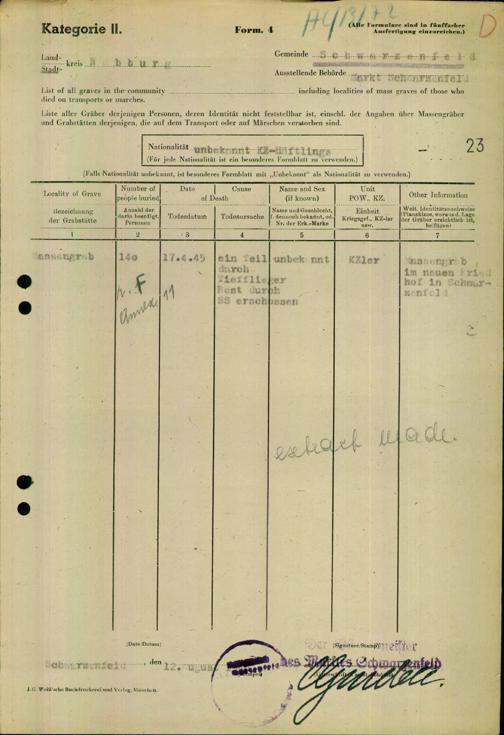 Kategorie II.
Form. 4
(Alle Formulare sind in fünffacher
Ausfertigung einzureichen.)
D
Land-
Stadt-
kreis Nabburg
Gemeinde Schwarzenfeld
Ausstellende Behörde Markt Schwarzenfeld
List of all graves in the community including localities of mass graves of those who
died on transports or marches.
Liste aller Gräber derjenigen Personen, deren Identität nicht feststellbar ist, einschl. der Angaben über Massengräber
und Grabstätten derjenigen, die auf dem Transport oder auf Märschen verstorben sind.
Nationalität unbekannt KZ-Häftlinge
(Für jede Nationalität ist ein besonderes Formblatt zu verwenden.)
- 23
(Falls Nationalität unbekannt, ist besonderes Formblatt mit „Unbekannt" als Nationalität zu verwenden.)
Locality of Grave
Bezeichnung
der Grabstätte
1
Number of
people buried
Anzahl der
darin beerdigt.
Personen
2
Date
of Death
Todesdatum
3
Cause
Todesursache
4
Name and Sex
(if known)
Name und Geschlecht,
f. dennoch bekannt, od.
Nr. der Erk.-Marke
5
Unit
POW., KZ.
Einheit
Kriegsgef., KZ-ler
usw.
6
Other Information
7
Massengrab
14o
17.4.45
ein Teil
durch
Tiefflieger
Rest durch
SS erschossen
unbekannt
KZler
Massengrab
im neuen Fried
hof in Schwar-
zenfeld
F
Annex 11
extract made.
(Date/Datum)
Schwarzenfeld, den 12.
(Signature/Stamp)
Der Bürgermeister
des Marktes Schwarzenfeld
J. G. Weiß'sche Buchdruckerei und Verlag, München.